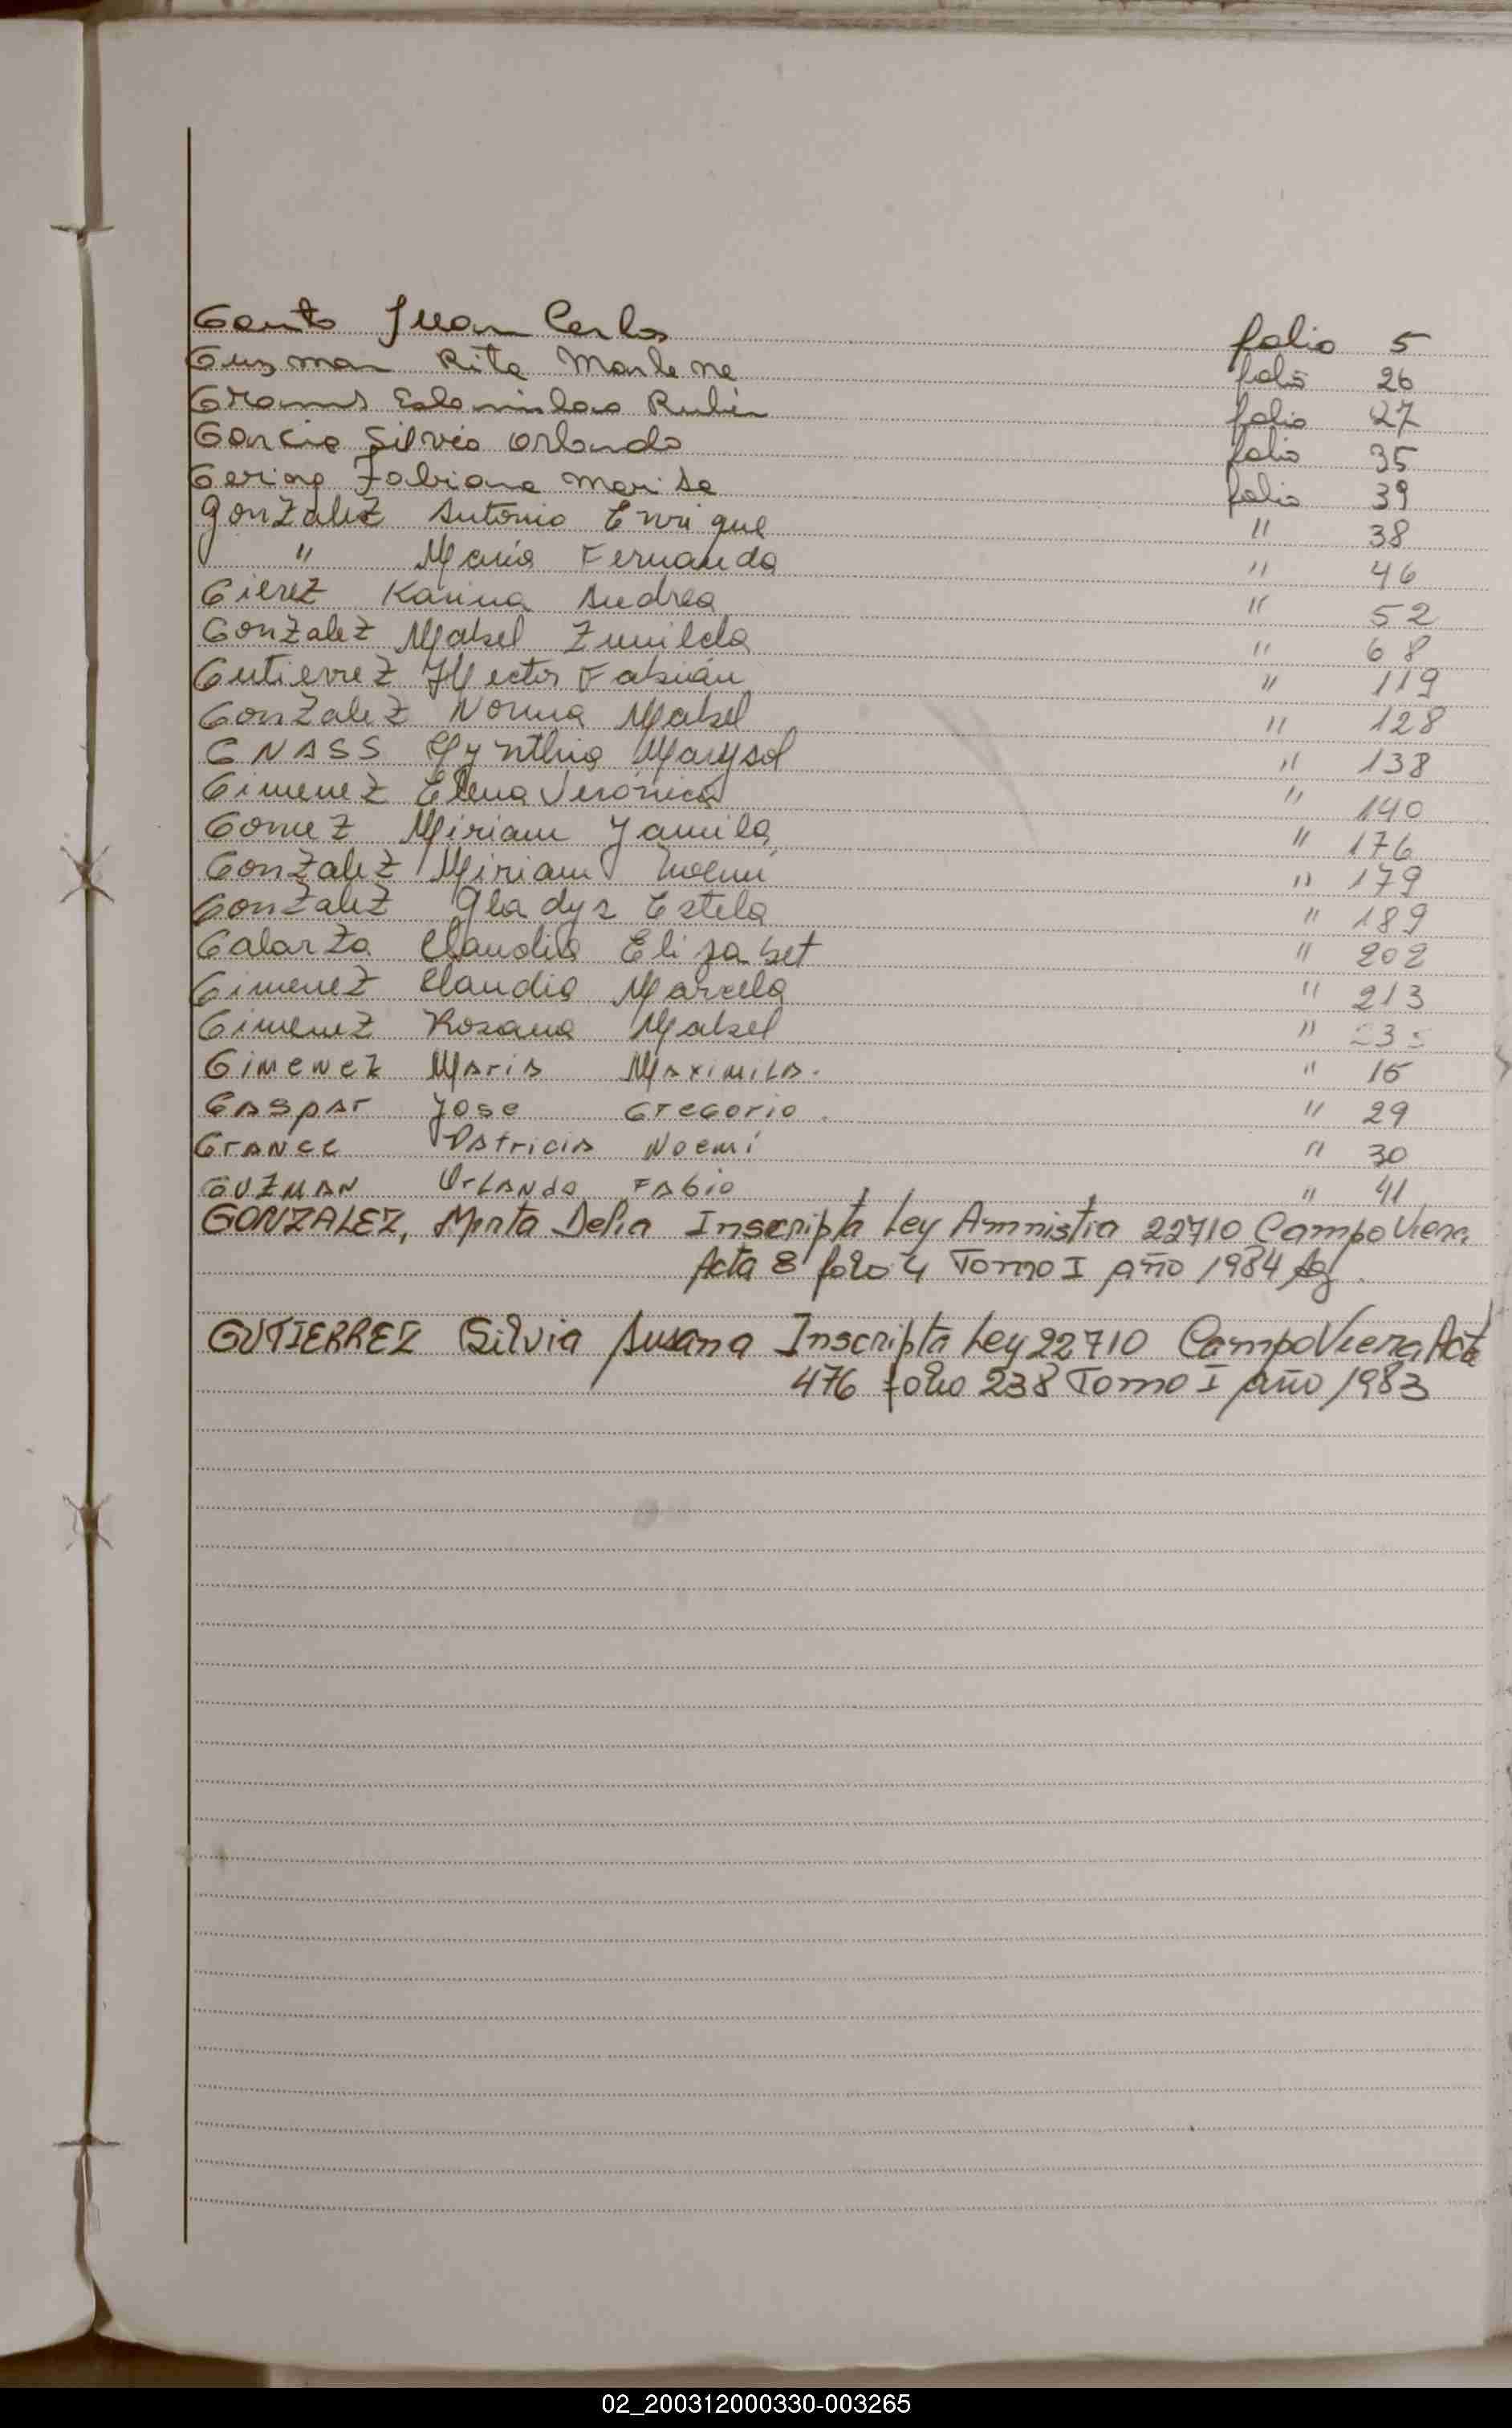 Gauto Juan Carlos folio 5
Guzman Rita Marlene folio 26
Estanislao Rubén folio 27
Garcia Silvio Orlando folio 35
Gering Fabiana Marisa folio 39
Gonzalez Antonio Enrique " 38
" María Fernanda " 46
Gierez Karina Andrea " 52
Gonzalez Mabel Zunilda " 68
Gutierrez Hector Fabián " 119
Gonzalez Norma Mabel " 128
GNASS Cynthia Marysol " 138
Gimenez Elena Verónica " 140
Gomez Miriam Yamila " 176
Gonzalez Miriam Noemí " 179
Gonzalez Gladys Estela " 189
Galarza Claudia Elizabet " 202
Gimenez Claudia Marcela " 213
Gimenez Rosana Mabel "
Gimenez Maria Maximila. " 15
Gaspar Jose Gregorio. " 29
Grance Patricia Noemí " 30
GUZMAN Orlando Fabio " 41
GONZALEZ, Mirta Delia Inscripta Ley Amnistia 22710 Campo Viera
Acta 8 folio 4 Tomo I año 1984
GUTIERREZ Silvia Susana Inscripta Ley 22710 Campo Viera Acta
476 folio 238 Tomo I año 1983
02_200312000330-003265